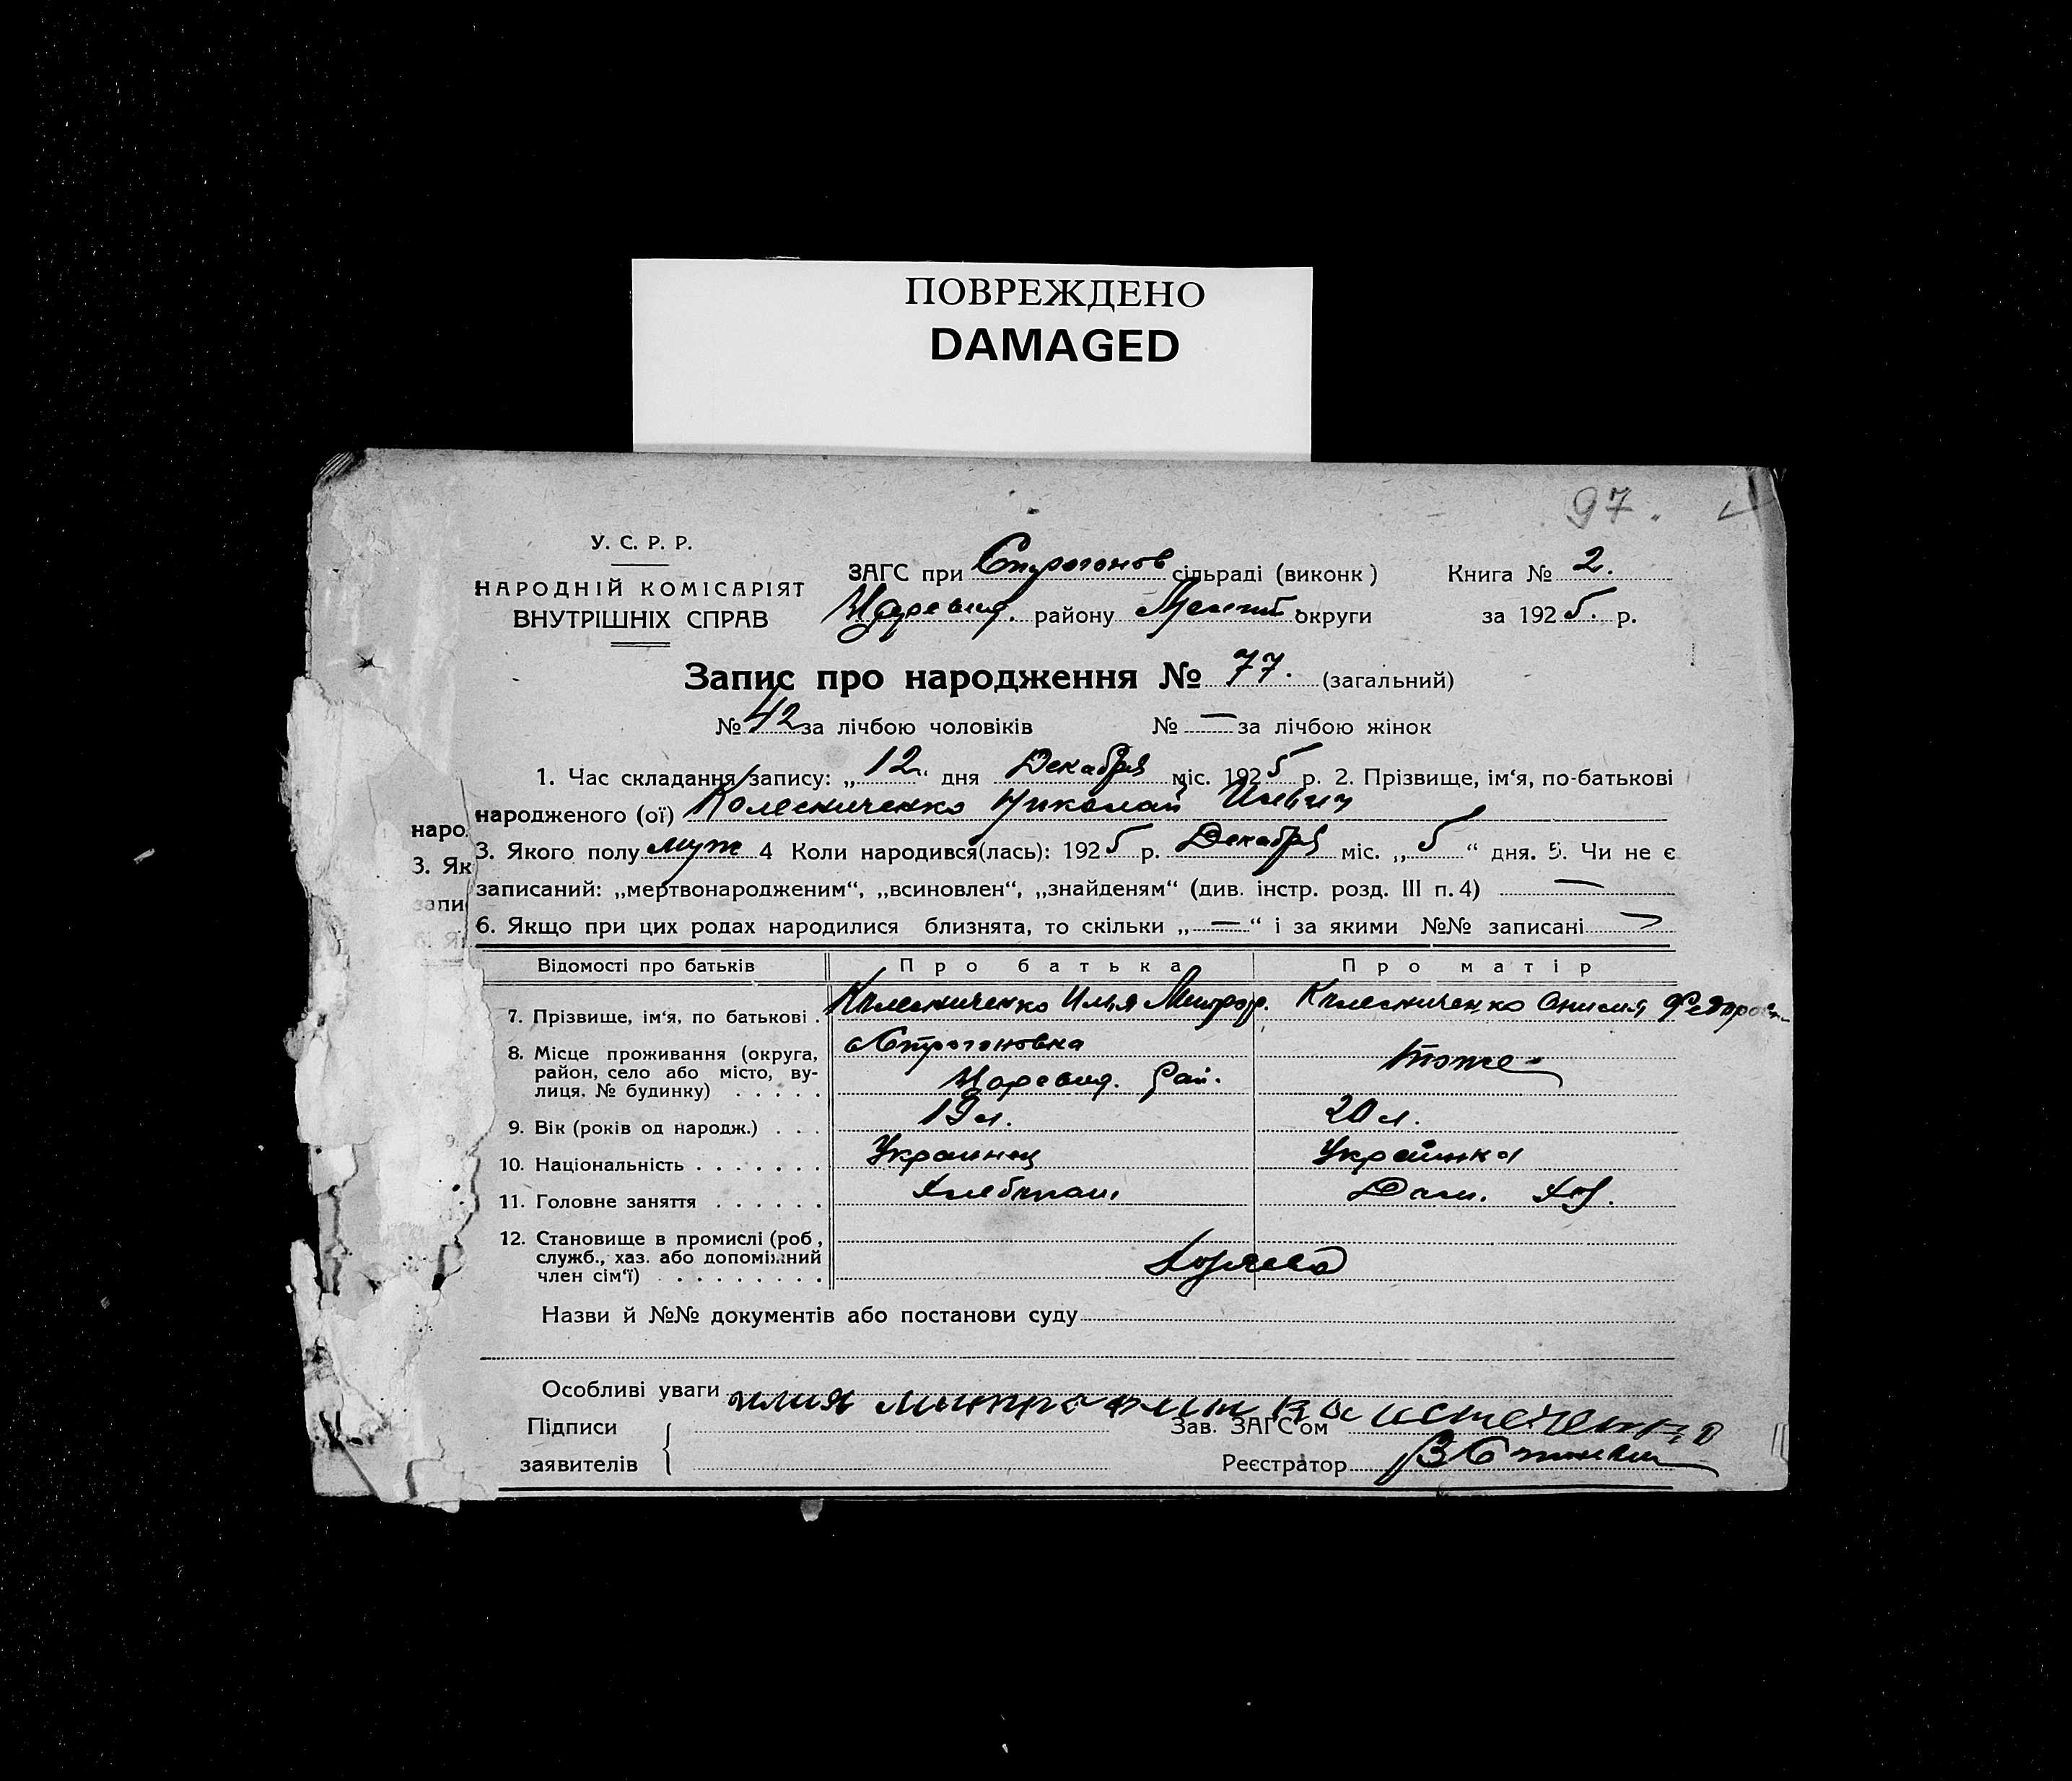 ПОВРЕЖДЕНО
DAMAGED
97.
У. С. Р. Р.
НАРОДНІЙ КОМІСАРІЯТ
ВНУТРІШНІХ СПРАВ
ЗАГС при Строгонов сільраді (виконк)
района району округи
Книга № 2.
за 1925. р.
Запис про народження № 77. (загальний)
№ 42 за лічбою чоловіків № — за лічбою жінок
1. Час складання запису: „12“ дня Декабря міс. 1925 р. 2. Прізвище, ім‘я, по-батькові
народженого (ої) Колесниченко Николай Ильич
3. Якого полу муж 4 Коли народився(лась): 1925 р. Декабря міс. „5“ дня. 5. Чи не є
записаний: „мертвонародженим“, „всиновлен“, „знайденям“ (див. інстр. розд. III п. 4) —
6. Якщо при цих родах народилися близнята, то скільки „—“ і за якими №№ записані
наро.
3. Як
запи
6. Я
Відомості про батьків Про батька Про матір
7. Прізвище, ім‘я, по батькові . Колесниченко Илья Митроф. Колесниченко
8. Місце проживання (округа, район, село або місто, ву-лиця, № будинку) . . . . . Строгоновка тоже
9. Вік (років од народж.) . . . 19 л. 20 л.
10. Національність . . . . . . . Украинец Украинка
11. Головне заняття . . . . . . Хлебопаш. Дом. Хоз.
12. Становище в промислі (роб,
служб., хаз. або допоміжний
член сім‘ї) . . . . . . . . . Хозяева
Назви й №№ документів або постанови суду
Особливі уваги
Підписи
заявителів
Зав. ЗАГС‘ом
Реєстратор